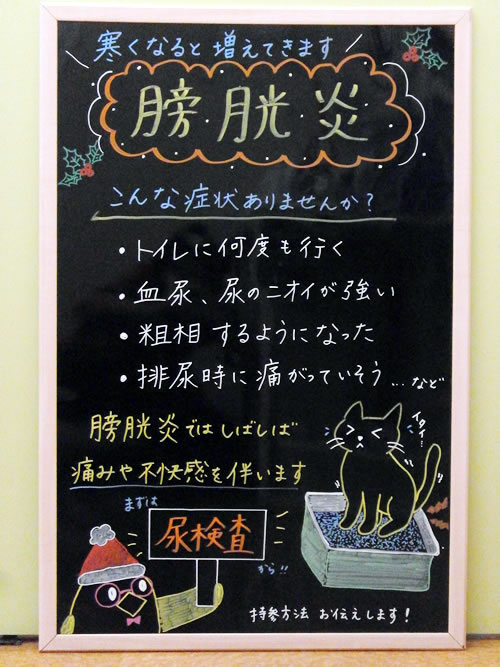 寒くなると増えてきます
膀胱炎
こんな症状ありませんか?
・トイレに何度も行く
・血尿、尿のニオイが強い
・粗相するようになった
・排尿時に痛がっていそう…など
膀胱炎ではしばしば
痛みや不快感を伴います
イタイ…
まずは
尿検査
から!!
持参方法 お伝えします!